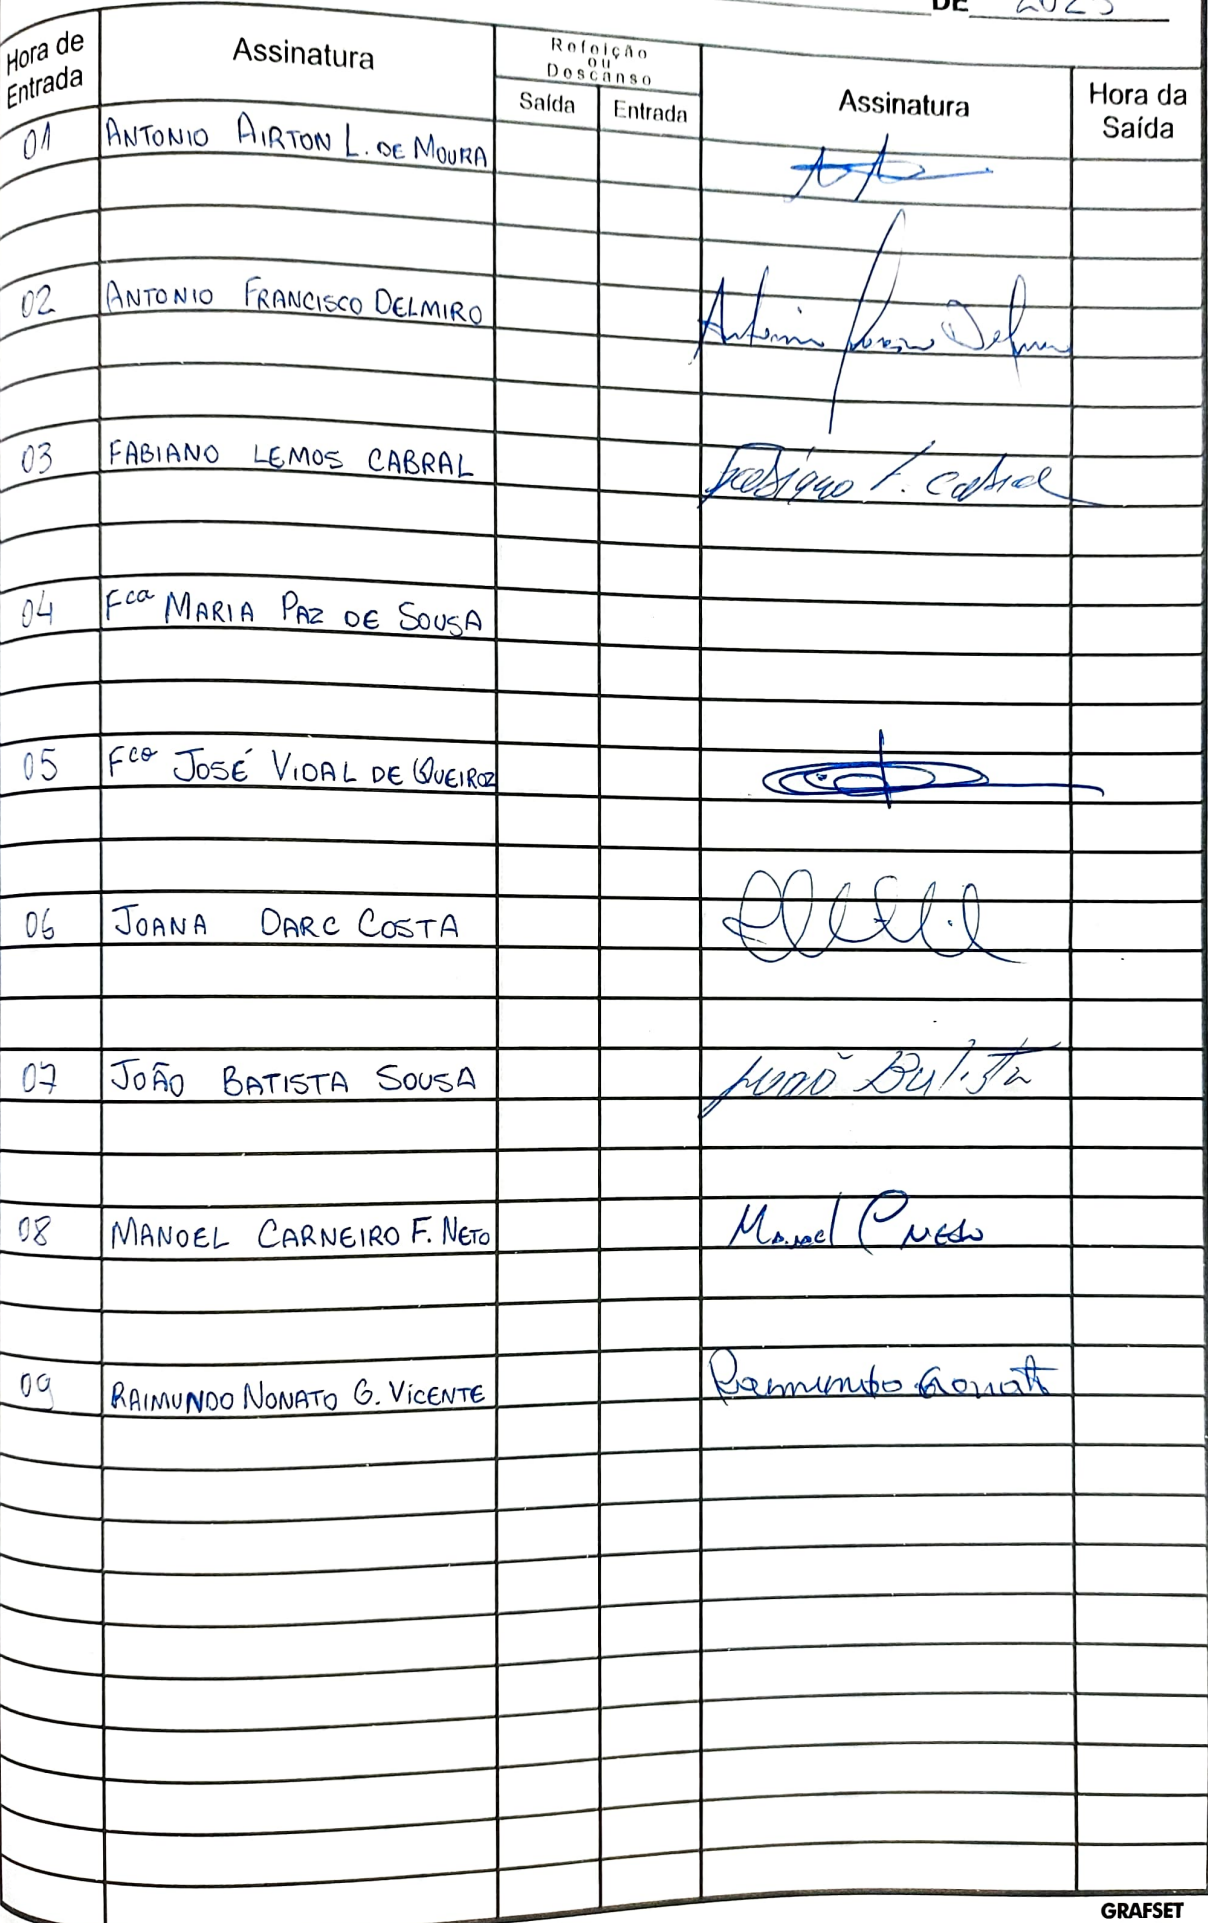 DE 2023
Hora de Entrada
Assinatura
Refeição ou Descanso
Saída
Entrada
Assinatura
Hora da Saída
01 ANTONIO AIRTON L. DE MOURA
02 ANTONIO FRANCISCO DELMIRO
Antonio Delmiro
03 FABIANO LEMOS CABRAL Fabiano L. Cabral
04 Fca MARIA PAZ DE SOUSA
05 Fco JOSÉ VIDAL DE QUEIROZ
06 JOANA DARC COSTA
07 JOÃO BATISTA SOUSA João Batista
08 MANOEL CARNEIRO F. NETO Manoel C Neto
09 RAIMUNDO NONATO G. VICENTE Raimundo Nonato
GRAFSET